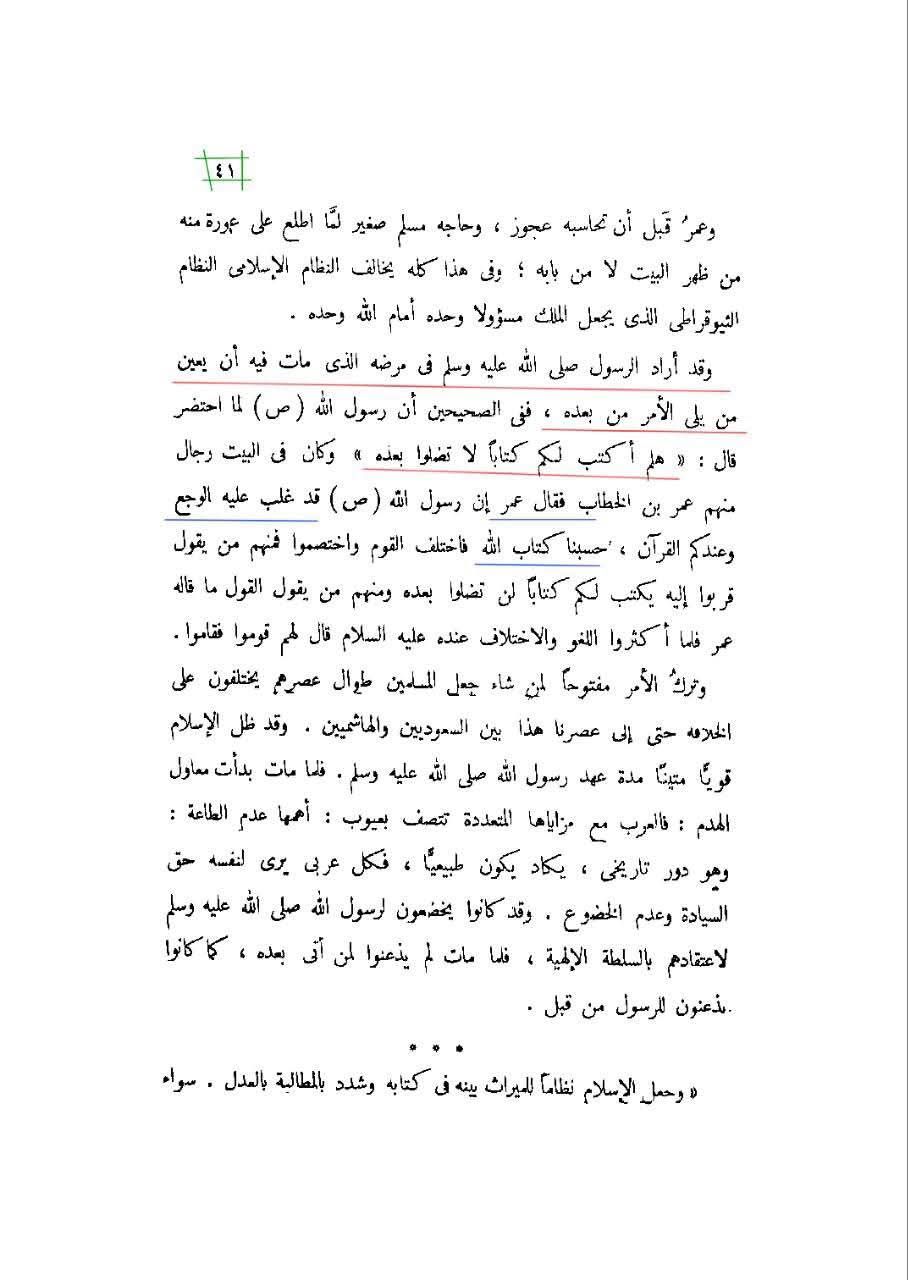 ٤١
وعمرُ قَبل أن تحاسبه عجوز ، وحاجه مسلم صغير لمَّا اطلع على عورة منه
من ظهر البيت لا من بابه ؛ وفى هذا كله يخالف النظام الإسلامى النظام
الثيوقراطى الذى يجعل الملك مسؤولا وحده أمام الله وحده .
وقد أراد الرسول صلى الله عليه وسلم فى مرضه الذى مات فيه أن يعين
من يلى الأمر من بعده ، ففى الصحيحين أن رسول الله ( ص ) لما احتضر
قال : « هلم أكتب لكم كتاباً لا تضلوا بعده » وكان فى البيت رجال
منهم عمر بن الخطاب فقال عمر إن رسول الله ( ص ) قد غلب عليه الوجع
وعندكم القرآن ، حسبنا كتاب الله فاختلف القوم واختصموا فمنهم من يقول
قربوا إليه يكتب لكم كتاباً لن تضلوا بعده ومنهم من يقول القول ما قاله
عمر فلما أكثروا اللغو والاختلاف عنده عليه السلام قال لهم قوموا فقاموا .
وتركُ الأمر مفتوحاً لمن شاء جعل المسلمين طوال عصرهم يختلفون على
الخلافه حتى إلى عصرنا هذا بين السعوديين والهاشميين . وقد ظل الإسلام
قويًّا متينًا مدة عهد رسول الله صلى الله عليه وسلم . فلما مات بدأت معاول
الهدم : فالعرب مع مزاياها المتعددة تتصف بعيوب : أهمها عدم الطاعة :
وهو دور تاريخى ، يكاد يكون طبيعيًّا ، فكل عربى يرى لنفسه حق
السيادة وعدم الخضوع . وقد كانوا يخضعون لرسول الله صلى الله عليه وسلم
لاعتقادهم بالسلطة الإلهية ، فلما مات لم يذعنوا لمن أتى بعده ، كما كانوا
يذعنون للرسول من قبل .
* * *
« وجعل الإسلام نظاماً للميراث بينه فى كتابه وشدد بالمطالبة بالعدل . سواء